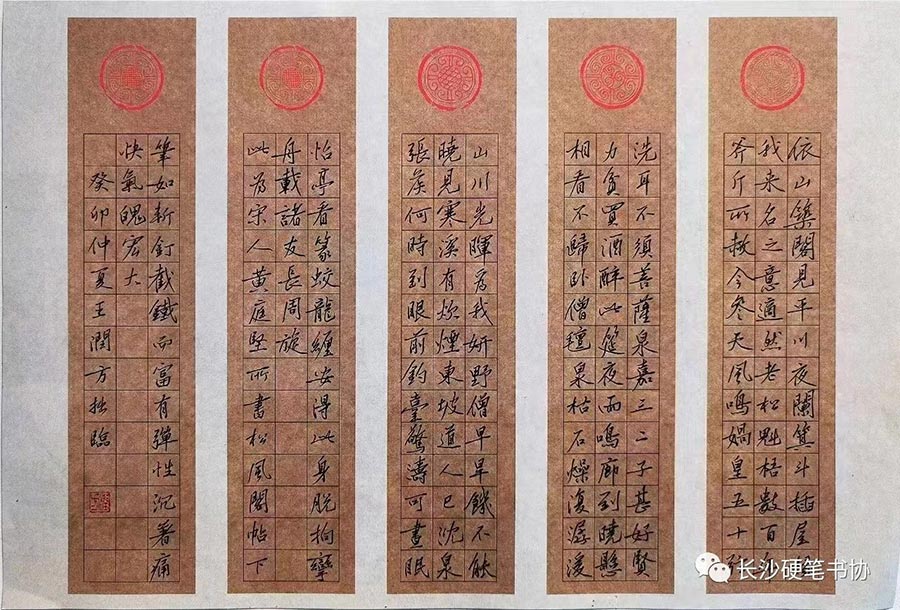 依山築閣見平川夜闌箕斗插屋
我来名之意適然老松魁梧數百
斧斤所赦今参天風鳴媧皇五十
洗耳不須菩薩泉嘉三二子甚好賢
力貧買酒醉此筵夜雨鳴廊到曉懸
相看不歸卧僧氊泉枯石燥復潺湲
山川光暉為我妍野僧早旱饑不能
曉見寒溪有炊煙東坡道人已沈泉
張侯何時到眼前釣臺驚濤可晝眠
怡亭看篆蛟龍纏安得此身脱拘攣
舟載諸友長周旋
此為宋人黄庭堅所書松風閣帖下
筆如斬釘截鐵而富有彈性沉著痛
快氣魄宏大
癸卯仲夏王潤方拙臨
长沙硬笔书协